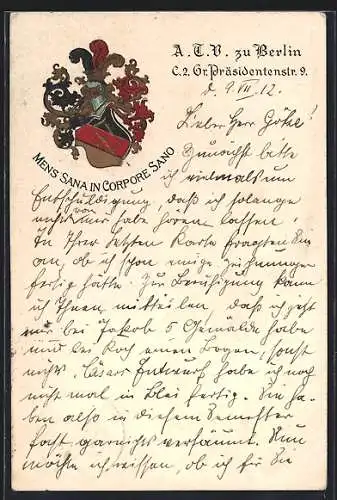 A. T. V. zu Berlin
C. 2. Gr. Präsidentenstr. 9.
d. 9. VII. 12.
MENS SANA IN CORPORE SANO
Lieber Herr Götze!
Zunächst bitte
ich vielmals um
Entschuldigung, daß ich solange
nichts von mir habe hören lassen!
In Ihrer letzten Karte fragten Sie
an, ob ich schon einige Zeichnungen
fertig hätte. Zur Beruhigung kann
ich Ihnen mitteilen, daß ich jetzt
nur bei Jakob 5 Gemälde habe
und bei Koch einen Bogen, sonst
nichts. Entwurf habe ich noch
nicht mal in Blei fertig. Sie ha-
ben also in diesem Semester
fast garnichts versäumt. Nun
möchte ich wissen, ob ich für Sie